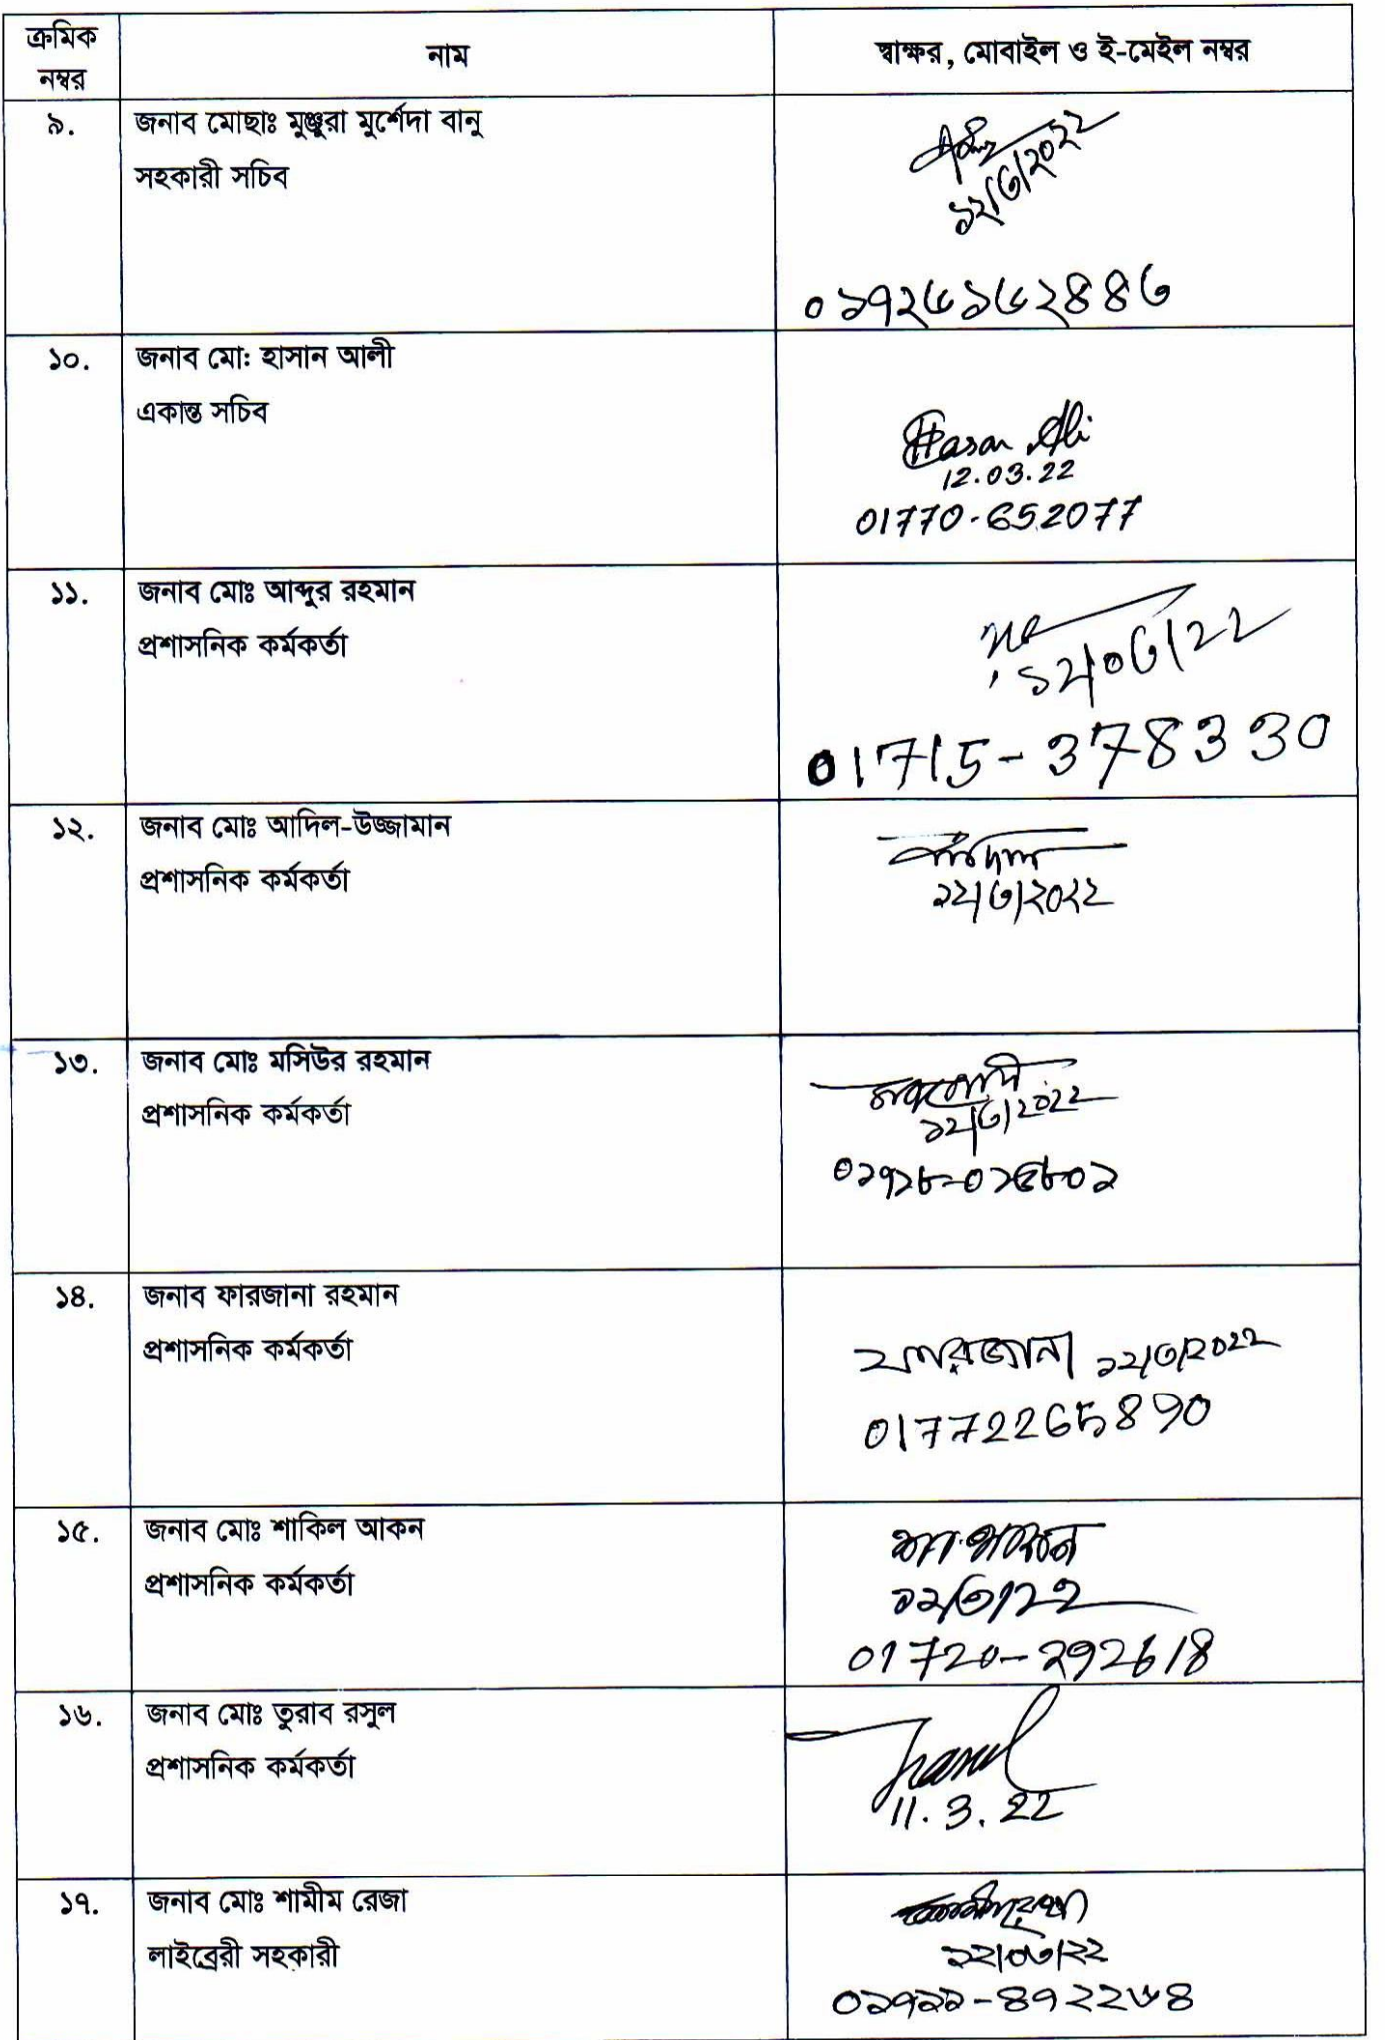 ক্রমিক নম্বর
নাম
স্বাক্ষর, মোবাইল ও ই-মেইল নম্বর
৯.
জনাব মোছাঃ মুঞ্জুরা মুর্শেদা বানু
সহকারী সচিব
১২/৩/২০২২
০১৭২৬১৬২৪৪৩
১০.
জনাব মো: হাসান আলী
একান্ত সচিব
Hasan Ali
12.03.22
01770-652077
১১.
জনাব মোঃ আব্দুর রহমান
প্রশাসনিক কর্মকর্তা
১২/০৩/২২
01715-378330
১২.
জনাব মোঃ আদিল-উজ্জামান
প্রশাসনিক কর্মকর্তা
আদিল
১২/৩/২০২২
১৩.
জনাব মোঃ মসিউর রহমান
প্রশাসনিক কর্মকর্তা
১২/৩/২০২২
১৪.
জনাব ফারজানা রহমান
প্রশাসনিক কর্মকর্তা
ফারজানা ১২/৩/২০২২
01772265890
১৫.
জনাব মোঃ শাকিল আকন
প্রশাসনিক কর্মকর্তা
১২/৩/২২
01720-292618
১৬.
জনাব মোঃ তুরাব রসুল
প্রশাসনিক কর্মকর্তা
11.3.22
১৭.
জনাব মোঃ শামীম রেজা
লাইব্রেরী সহকারী
১২/০৩/২২
০১৭১১-৪৭২২৬৪